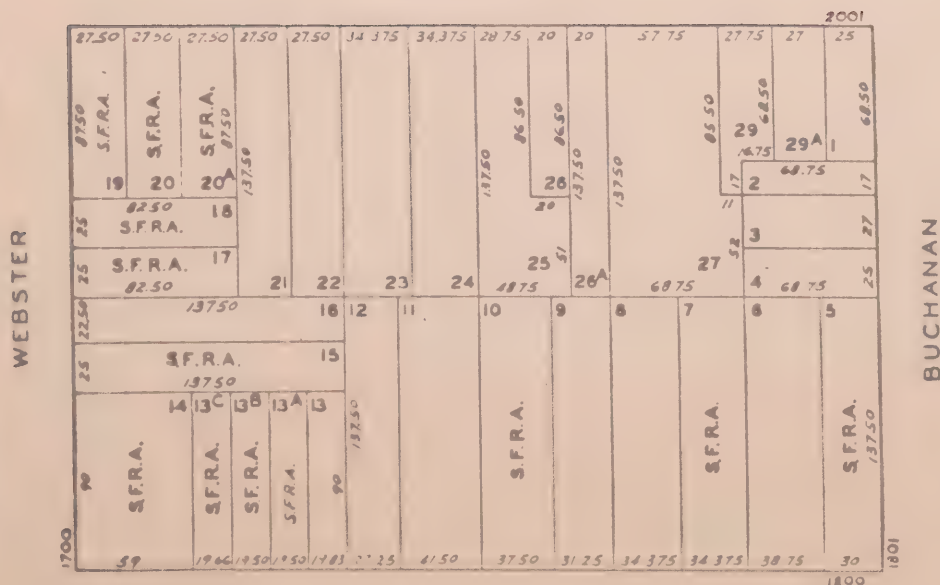 2001
27.50 27.50 27.50 27.50 27.50 34.375 34.375 28.75 20 20 57.75 27.75 27 25
87.50 S.F.R.A. S.F.R.A. S.F.R.A. 87.50 137.50 137.50 86.50 86.50 137.50 137.50 85.50 68.50 68.50
29 29A 1
16.75 68.75
19 20 20A 26 17 2 17
82.50 18 20 11
25 S.F.R.A. 3 27
S.F.R.A. 17 25 51 52
25 82.50 21 22 23 24 48.75 26A 68.75 27 4 68.75 25
WEBSTER
BUCHANAN
22.50 137.50 16 12 11 10 9 8 7 6 5
25 S.F.R.A. 15
137.50
14 13C 13B 13A 13 137.50
90 S.F.R.A. S.F.R.A. S.F.R.A. S.F.R.A. 90 S.F.R.A. S.F.R.A. S.F.R.A. 137.50
1700 59 19.66 19.50 19.50 19.83 41.50 37.50 31.25 34.375 34.375 38.75 30 1801
1899